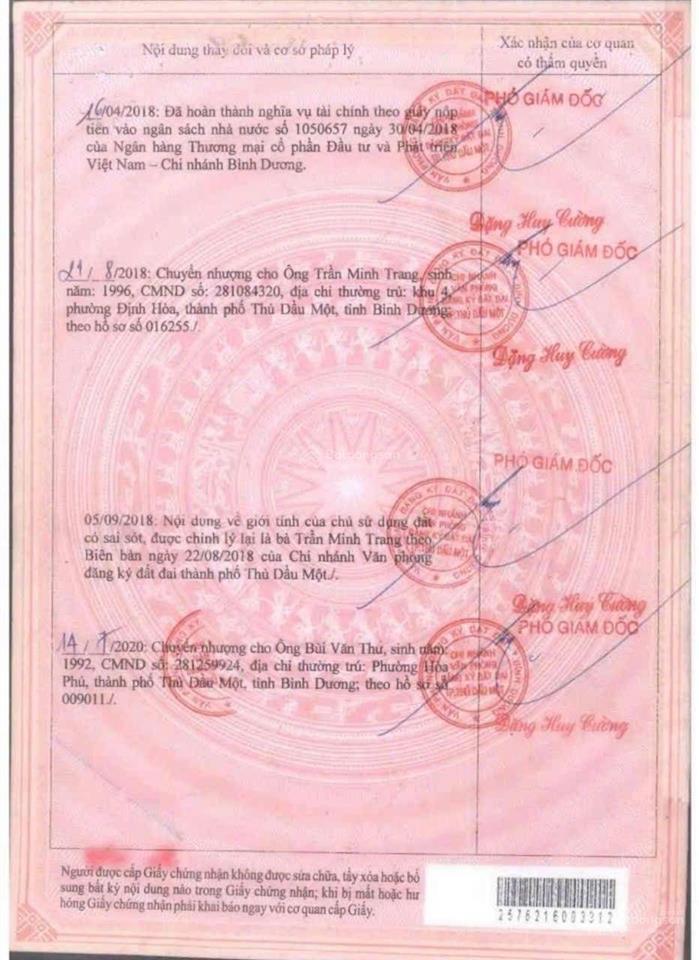 Nội dung thay đổi và cơ sở pháp lý
Xác nhận của cơ quan
có thẩm quyền
16/04/2018: Đã hoàn thành nghĩa vụ tài chính theo giấy nộp
tiền vào ngân sách nhà nước số 1050657 ngày 30/04/2018
của Ngân hàng Thương mại cổ phần Đầu tư và Phát triển
Việt Nam – Chi nhánh Bình Dương.
PHÓ GIÁM ĐỐC
Đặng Huy Cường
21/8/2018: Chuyển nhượng cho Ông Trần Minh Trang, sinh
năm: 1996, CMND số: 281084320, địa chỉ thường trú: khu 4,
phường Định Hòa, thành phố Thủ Dầu Một, tỉnh Bình Dương;
theo hồ sơ số 016255./.
PHÓ GIÁM ĐỐC
Đặng Huy Cường
05/09/2018: Nội dung về giới tính của chủ sử dụng đất
có sai sót, được chỉnh lý lại là bà Trần Minh Trang theo
Biên bản ngày 22/08/2018 của Chi nhánh Văn phòng
đăng ký đất đai thành phố Thủ Dầu Một./.
PHÓ GIÁM ĐỐC
Đặng Huy Cường
14/7/2020: Chuyển nhượng cho Ông Bùi Văn Thư, sinh năm:
1992, CMND số: 281259924, địa chỉ thường trú: Phường Hòa
Phú, thành phố Thủ Dầu Một, tỉnh Bình Dương; theo hồ sơ số
009011./.
PHÓ GIÁM ĐỐC
Đặng Huy Cường
Người được cấp Giấy chứng nhận không được sửa chữa, tẩy xóa hoặc bổ
sung bất kỳ nội dung nào trong Giấy chứng nhận; khi bị mất hoặc hư
hỏng Giấy chứng nhận phải khai báo ngay với cơ quan cấp Giấy.
2576216003312